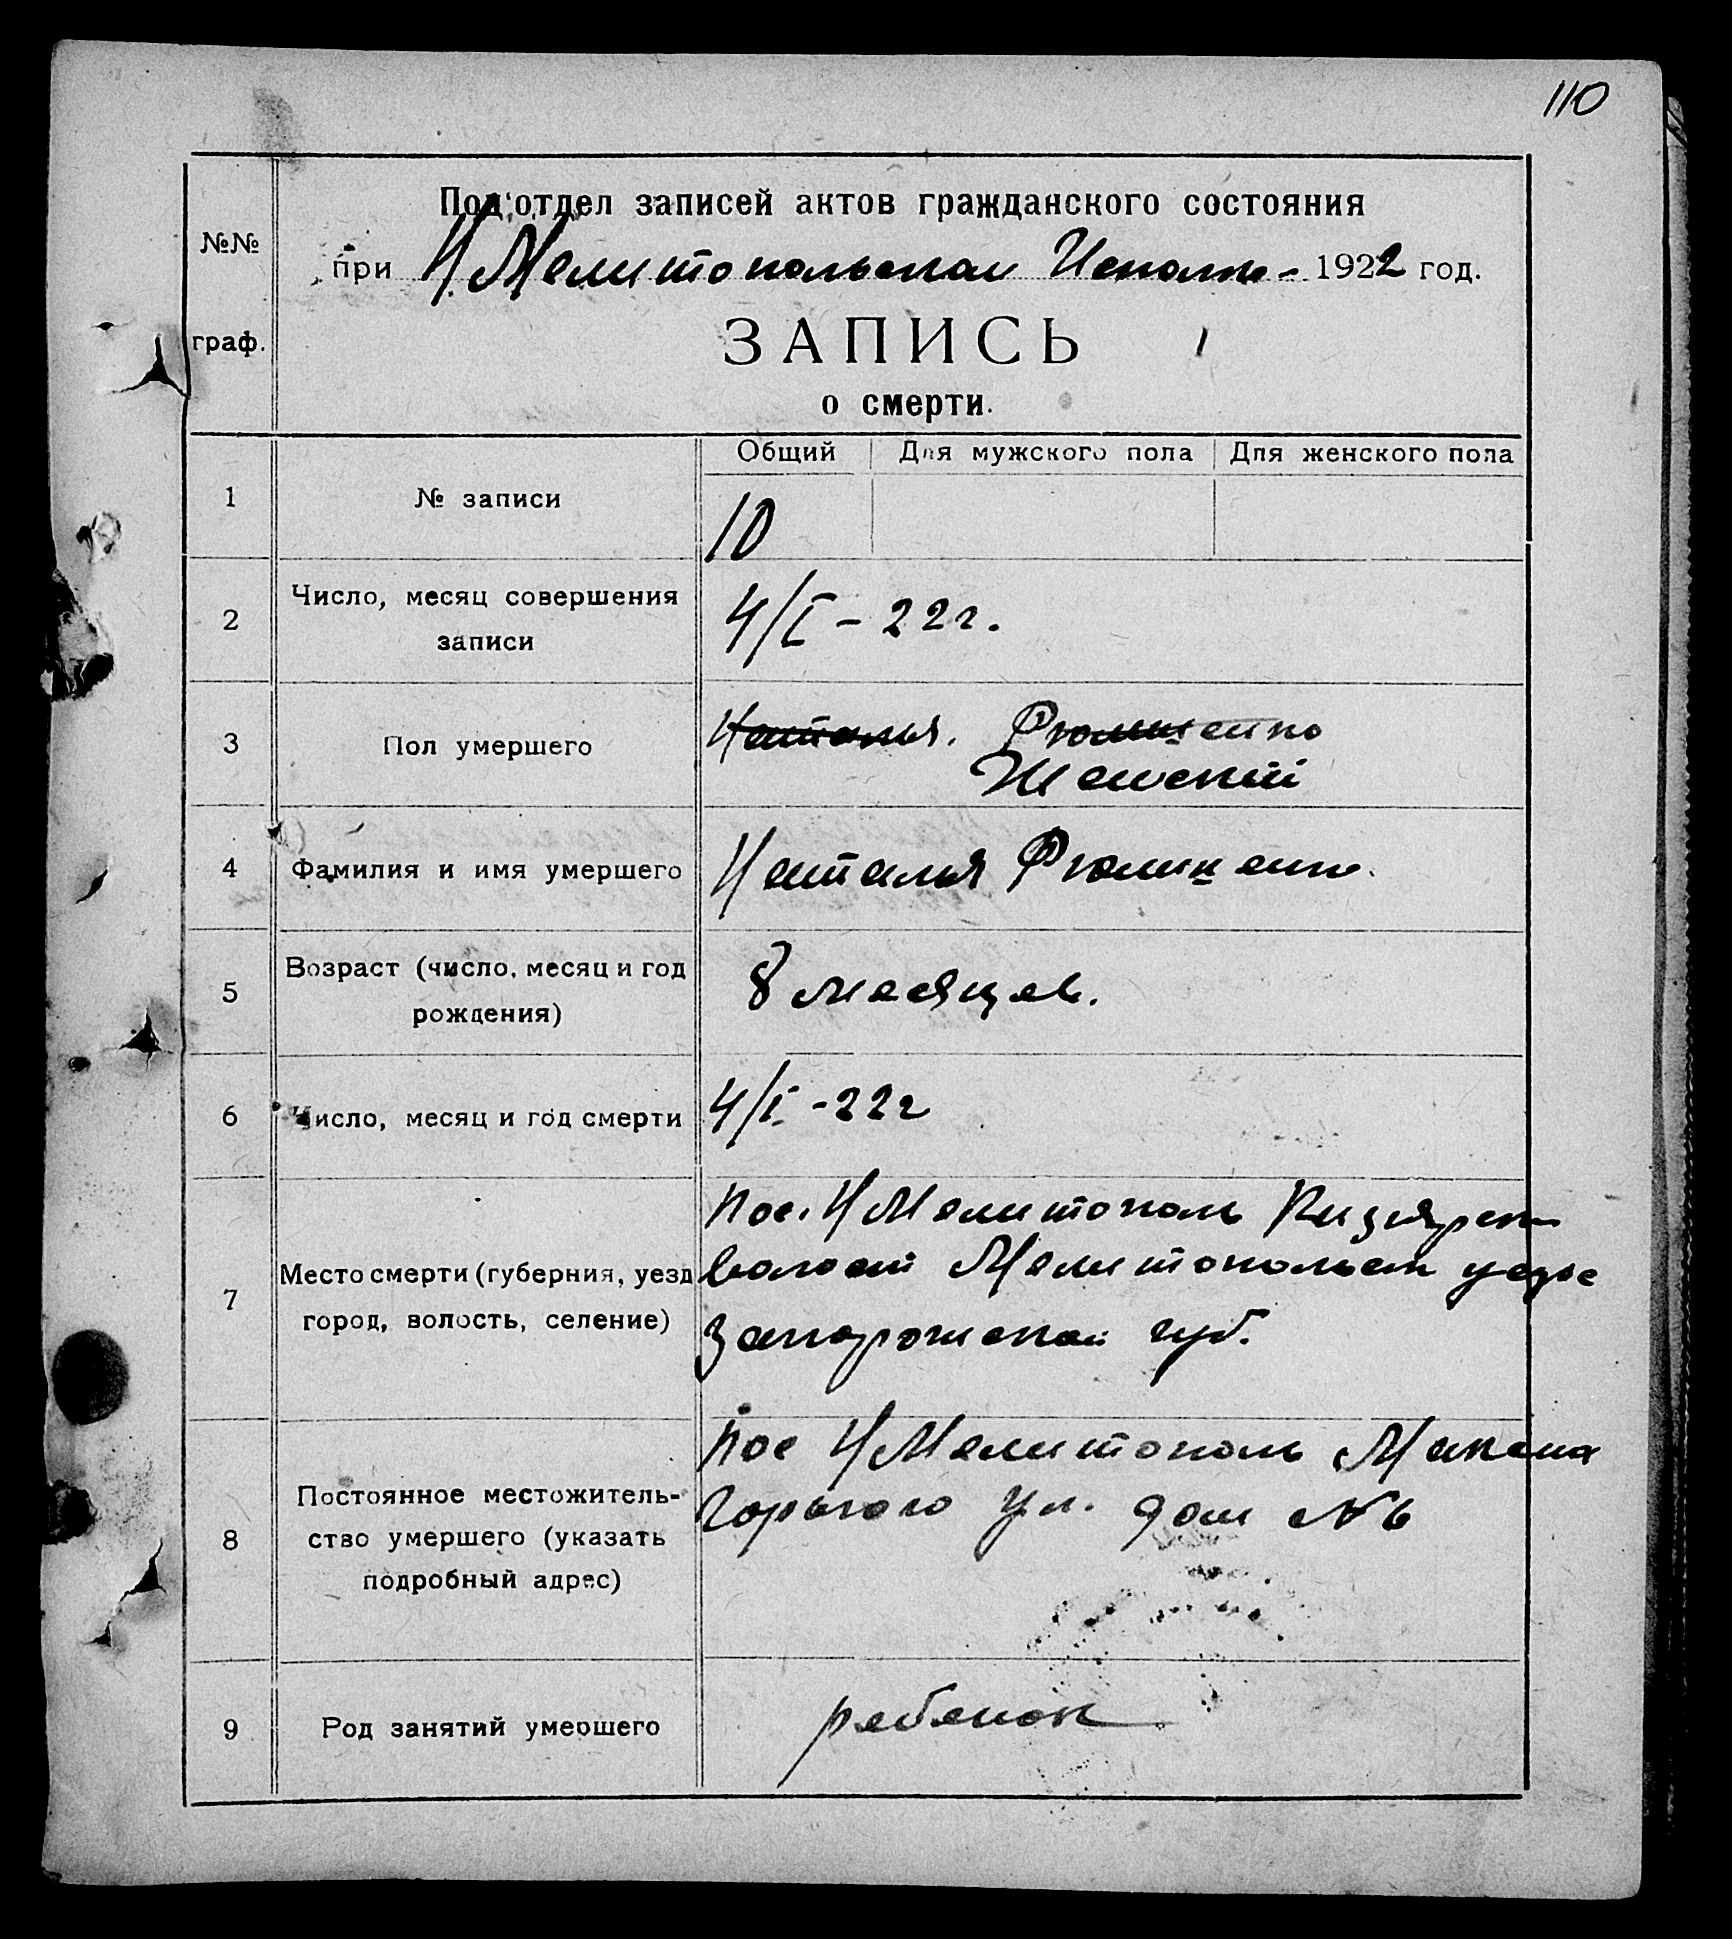 110
№№
граф.
Под'отдел записей актов гражданского состояния
при Н Мелитопольском Исполк- 1922 год.
ЗАПИСЬ
о смерти.
Общий Для мужского пола Для женского пола
1 № записи 10
2 Число, месяц совершения
записи
4/I – 22г.
3 Пол умершего
Наталья.
Женский
4 Фамилия и имя умершего Наталья
5 Возраст (число, месяц и год
рождения)
8 месяцев.
6 Число, месяц и год смерти 4/I -22г
7 Место смерти (губерния, уезд
город, волость, селение)
пос. Н Мелитополь Кизиярск
волости Мелитопольск уезде
Запорожской губ.
8 Постоянное местожитель-
ство умершего (указать
подробный адрес)
пос Н Мелитополь Максима
Горького ул. дом № 6
9 Род занятий умершего ребенок